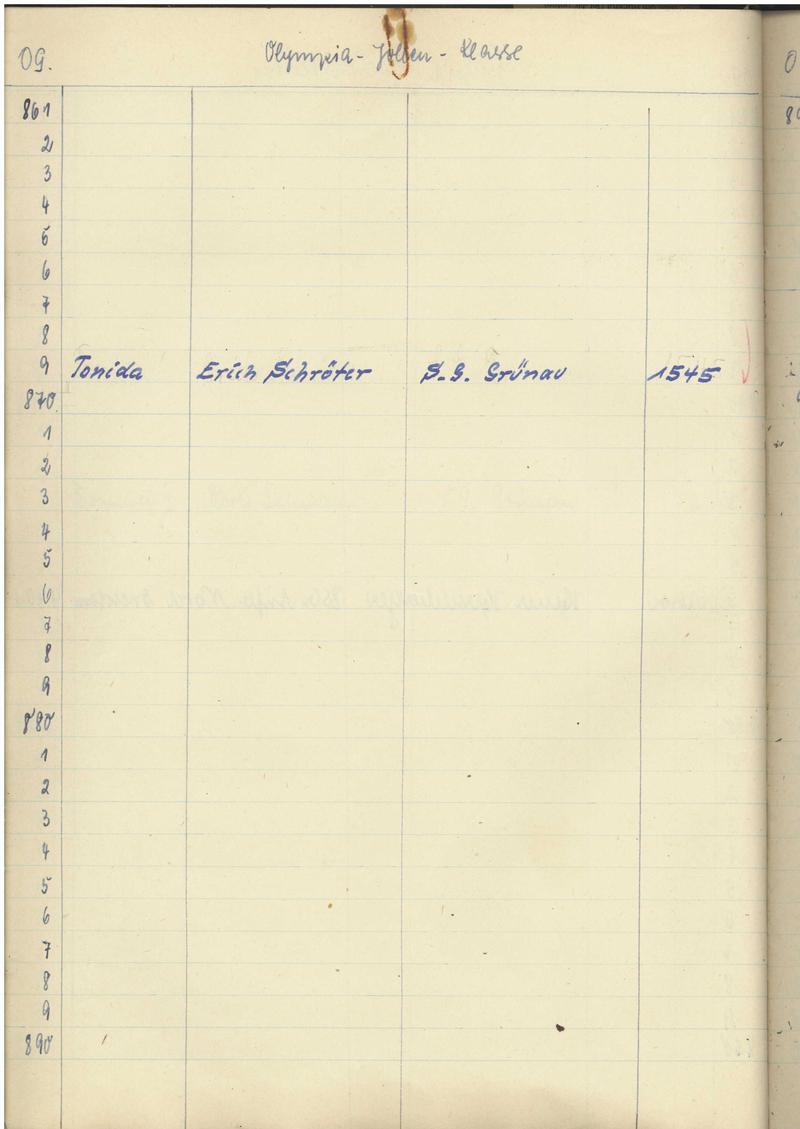 OG. Olympia-Jollen-Klasse O
861 86
2
3
4
5
6
7
8
9 Tonida Erich Schröter S.G. Grünau 1545
870
1
2
3
4
5
6
7
8
9
880
1
2
3
4
5
6
7
8
9
890